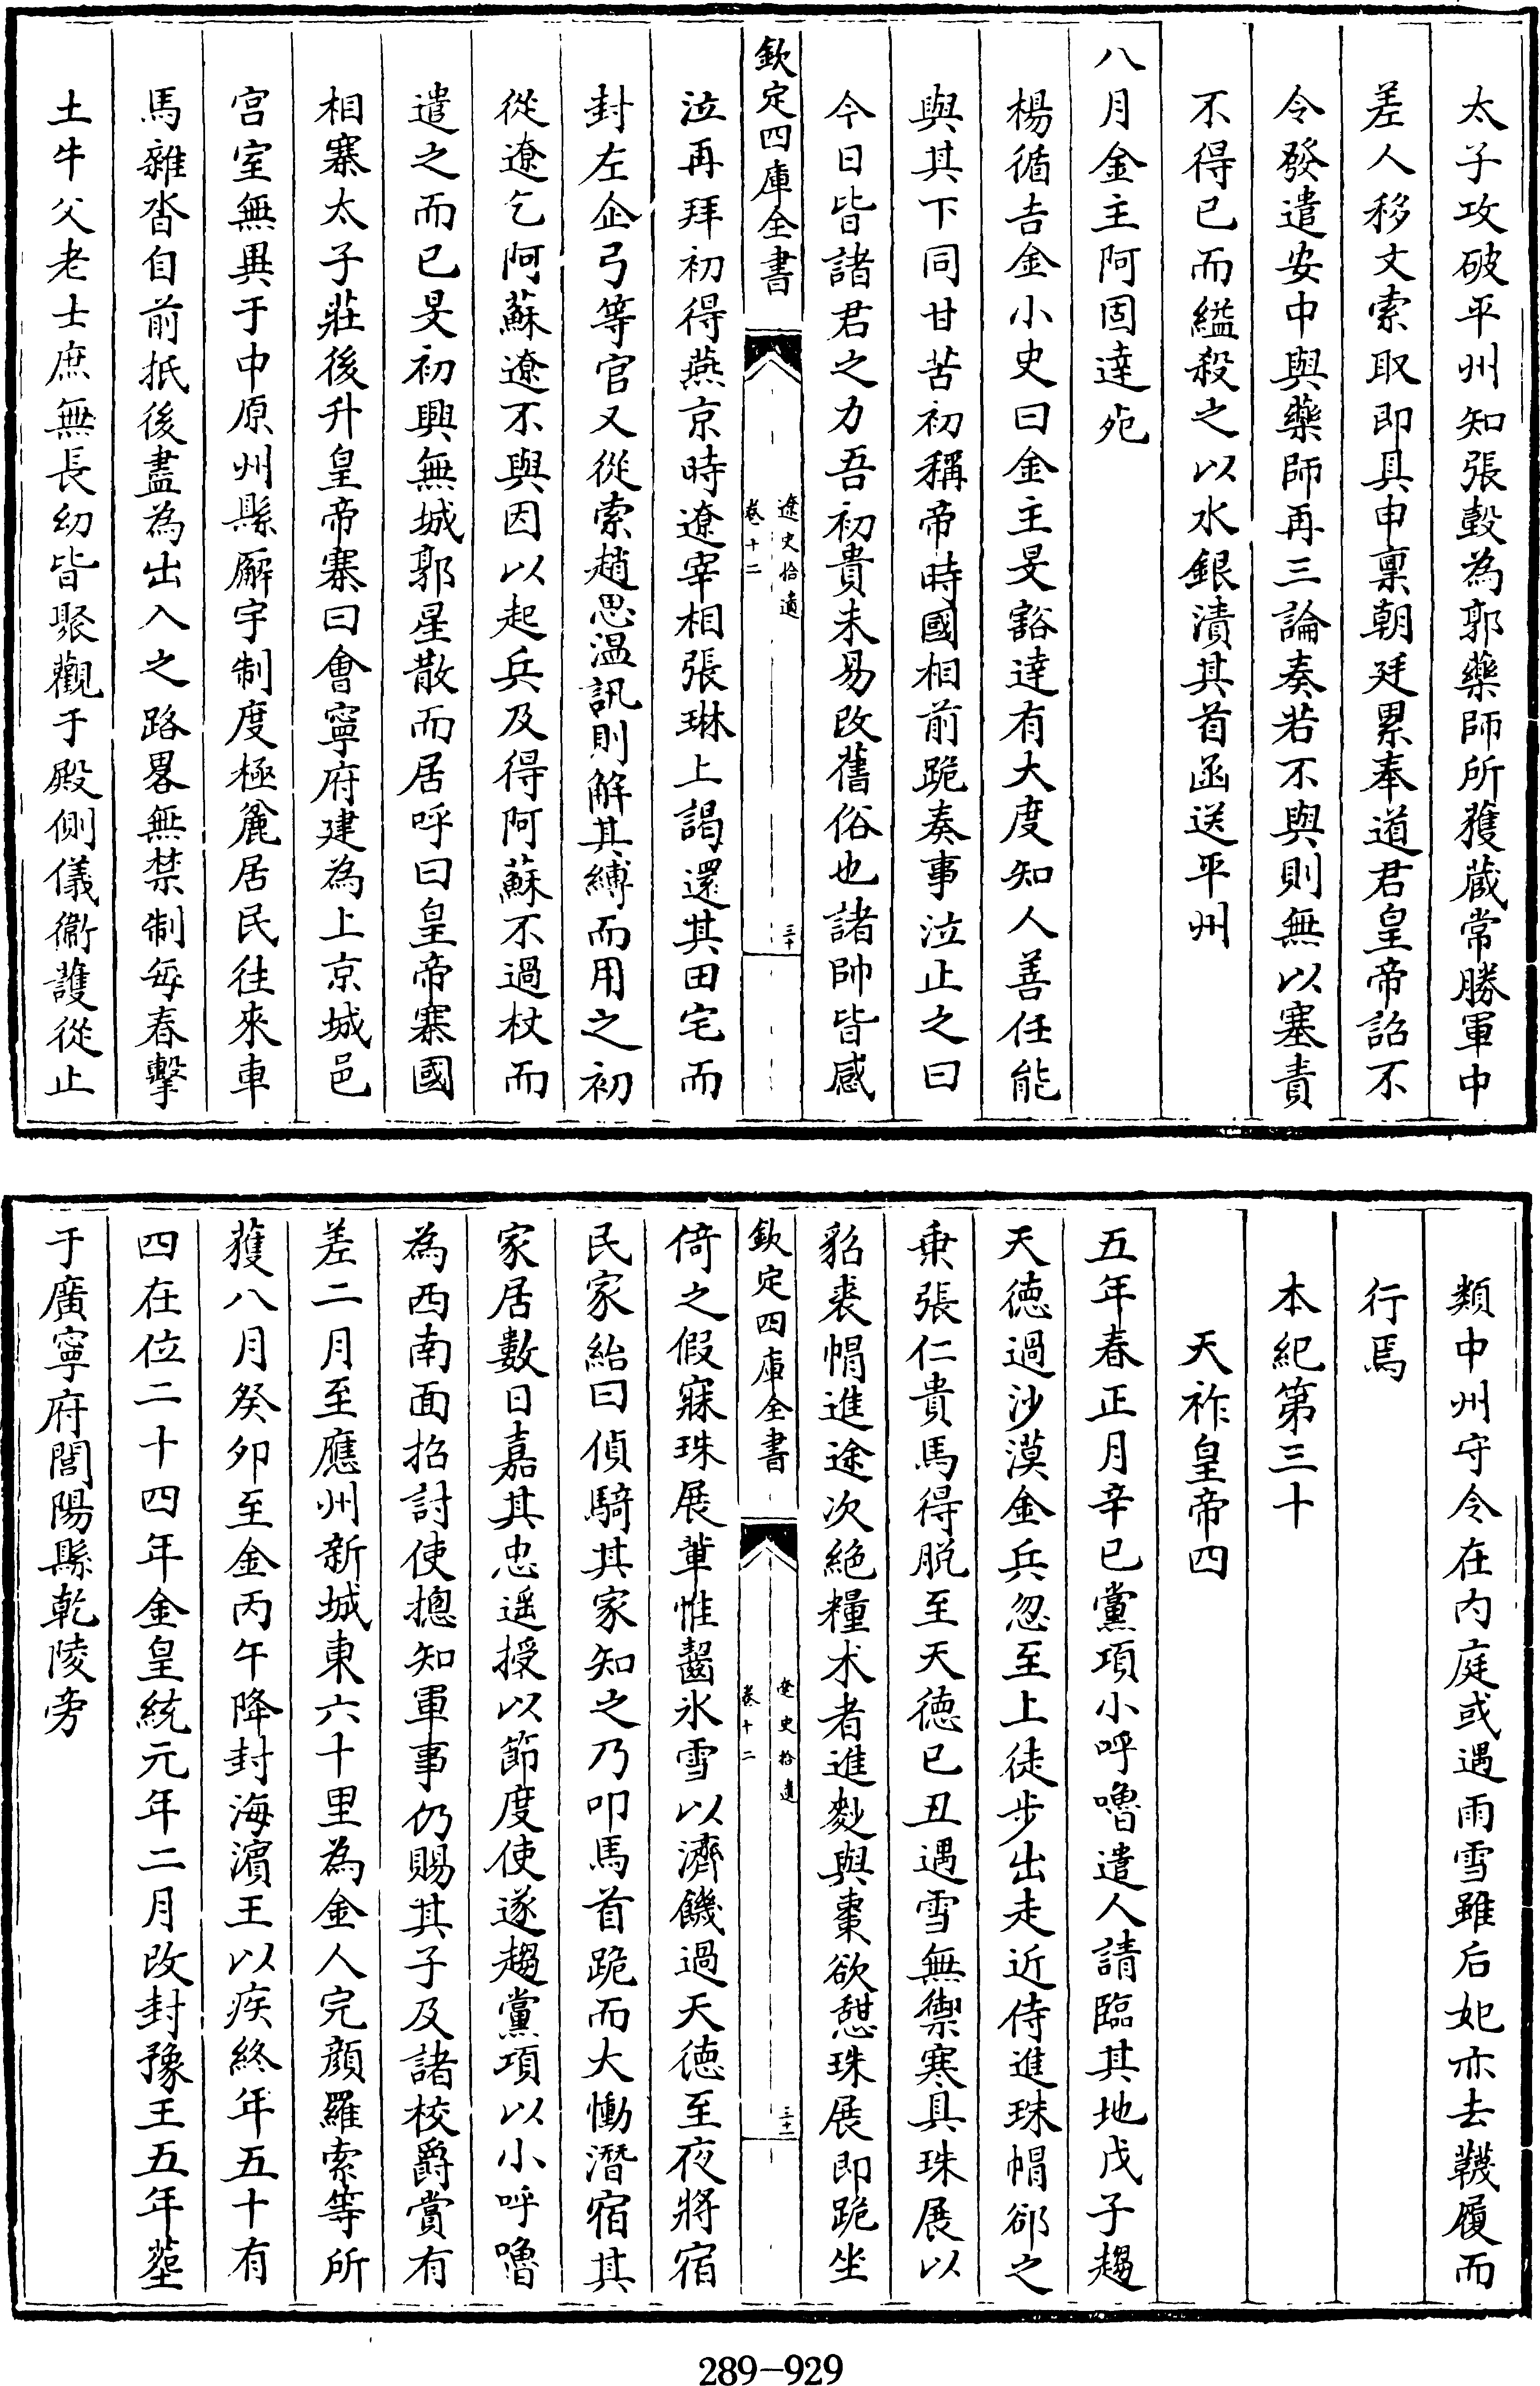 太子攻破平州知張瑴為郭藥師所獲蔵常勝軍中
差人移文索取即具申稟朝廷累奉道君皇帝詔不
令發遣安中與藥師再三論奏若不與則無以塞責
不得已而縊殺之以水銀漬其首函送平州
八月金主阿固達殂
楊循吉金小史曰金主旻豁達有大度知人善任能
與其下同甘苦初稱帝時國相前跪奏事泣止之曰
今日皆諸君之力吾初貴未易改舊俗也諸帥皆感
欽定四庫全書
遼史拾遺
卷十二
三十
泣再拜初得燕京時遼宰相張琳上謁還其田宅而
封左企弓等官又從索趙思温訊則解其縛而用之初
從遼乞阿蘇遼不與因以起兵及得阿蘇不過杖而
遣之而已旻初興無城郭星散而居呼曰皇帝寨國
相寨太子莊後升皇帝寨曰會寧府建為上京城邑
宫室無異于中原州縣廨宇制度極麄居民往來車
馬雜沓自前抵後盡為出入之路畧無禁制每春擊
土牛父老士庶無長幼皆聚觀于殿側儀衞護從止
類中州守令在内庭或遇雨雪雖后妃亦去韈履而
行焉
本紀第三十
天祚皇帝四
五年春正月辛巳黨項小呼嚕遣人請臨其地戊子趨
天德過沙漠金兵忽至上徒步出走近侍進珠帽郤之
乗張仁貴馬得脱至天德已丑遇雪無禦寒具珠展以
貂裘帽進途次絶糧术者進麨與棗欲憇珠展即跪坐
欽定四庫全書
遼史拾遺
卷十二
三十一
倚之假寐珠展輩惟齧氷雪以濟饑過天德至夜將宿
民家紿曰偵騎其家知之乃叩馬首跪而大慟潛宿其
家居數日嘉其忠遥授以節度使遂趨黨項以小呼嚕
為西南面招討使摠知軍事仍賜其子及諸校爵賞有
差二月至應州新城東六十里為金人完顔羅索等所
獲八月癸卯至金丙午降封海濵王以疾終年五十有
四在位二十四年金皇統元年二月改封豫王五年塟
于廣寧府閭陽縣乾陵旁
289-929